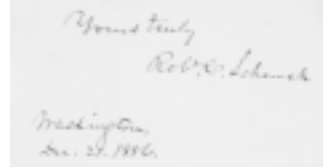 Yours truly
Robt. C. Schenck
Washington,
Dec. 23. 1886.